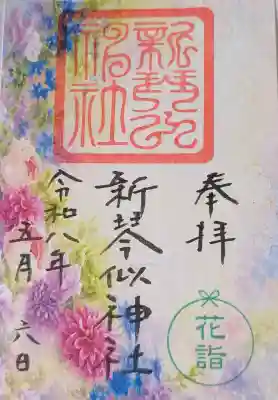 奉拝
花詣
新琴似神社
令和八年
五月六日
新琴似
神社